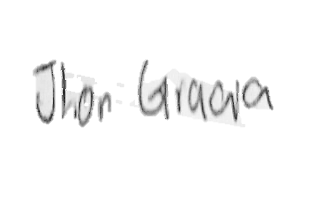 Jhon Graca